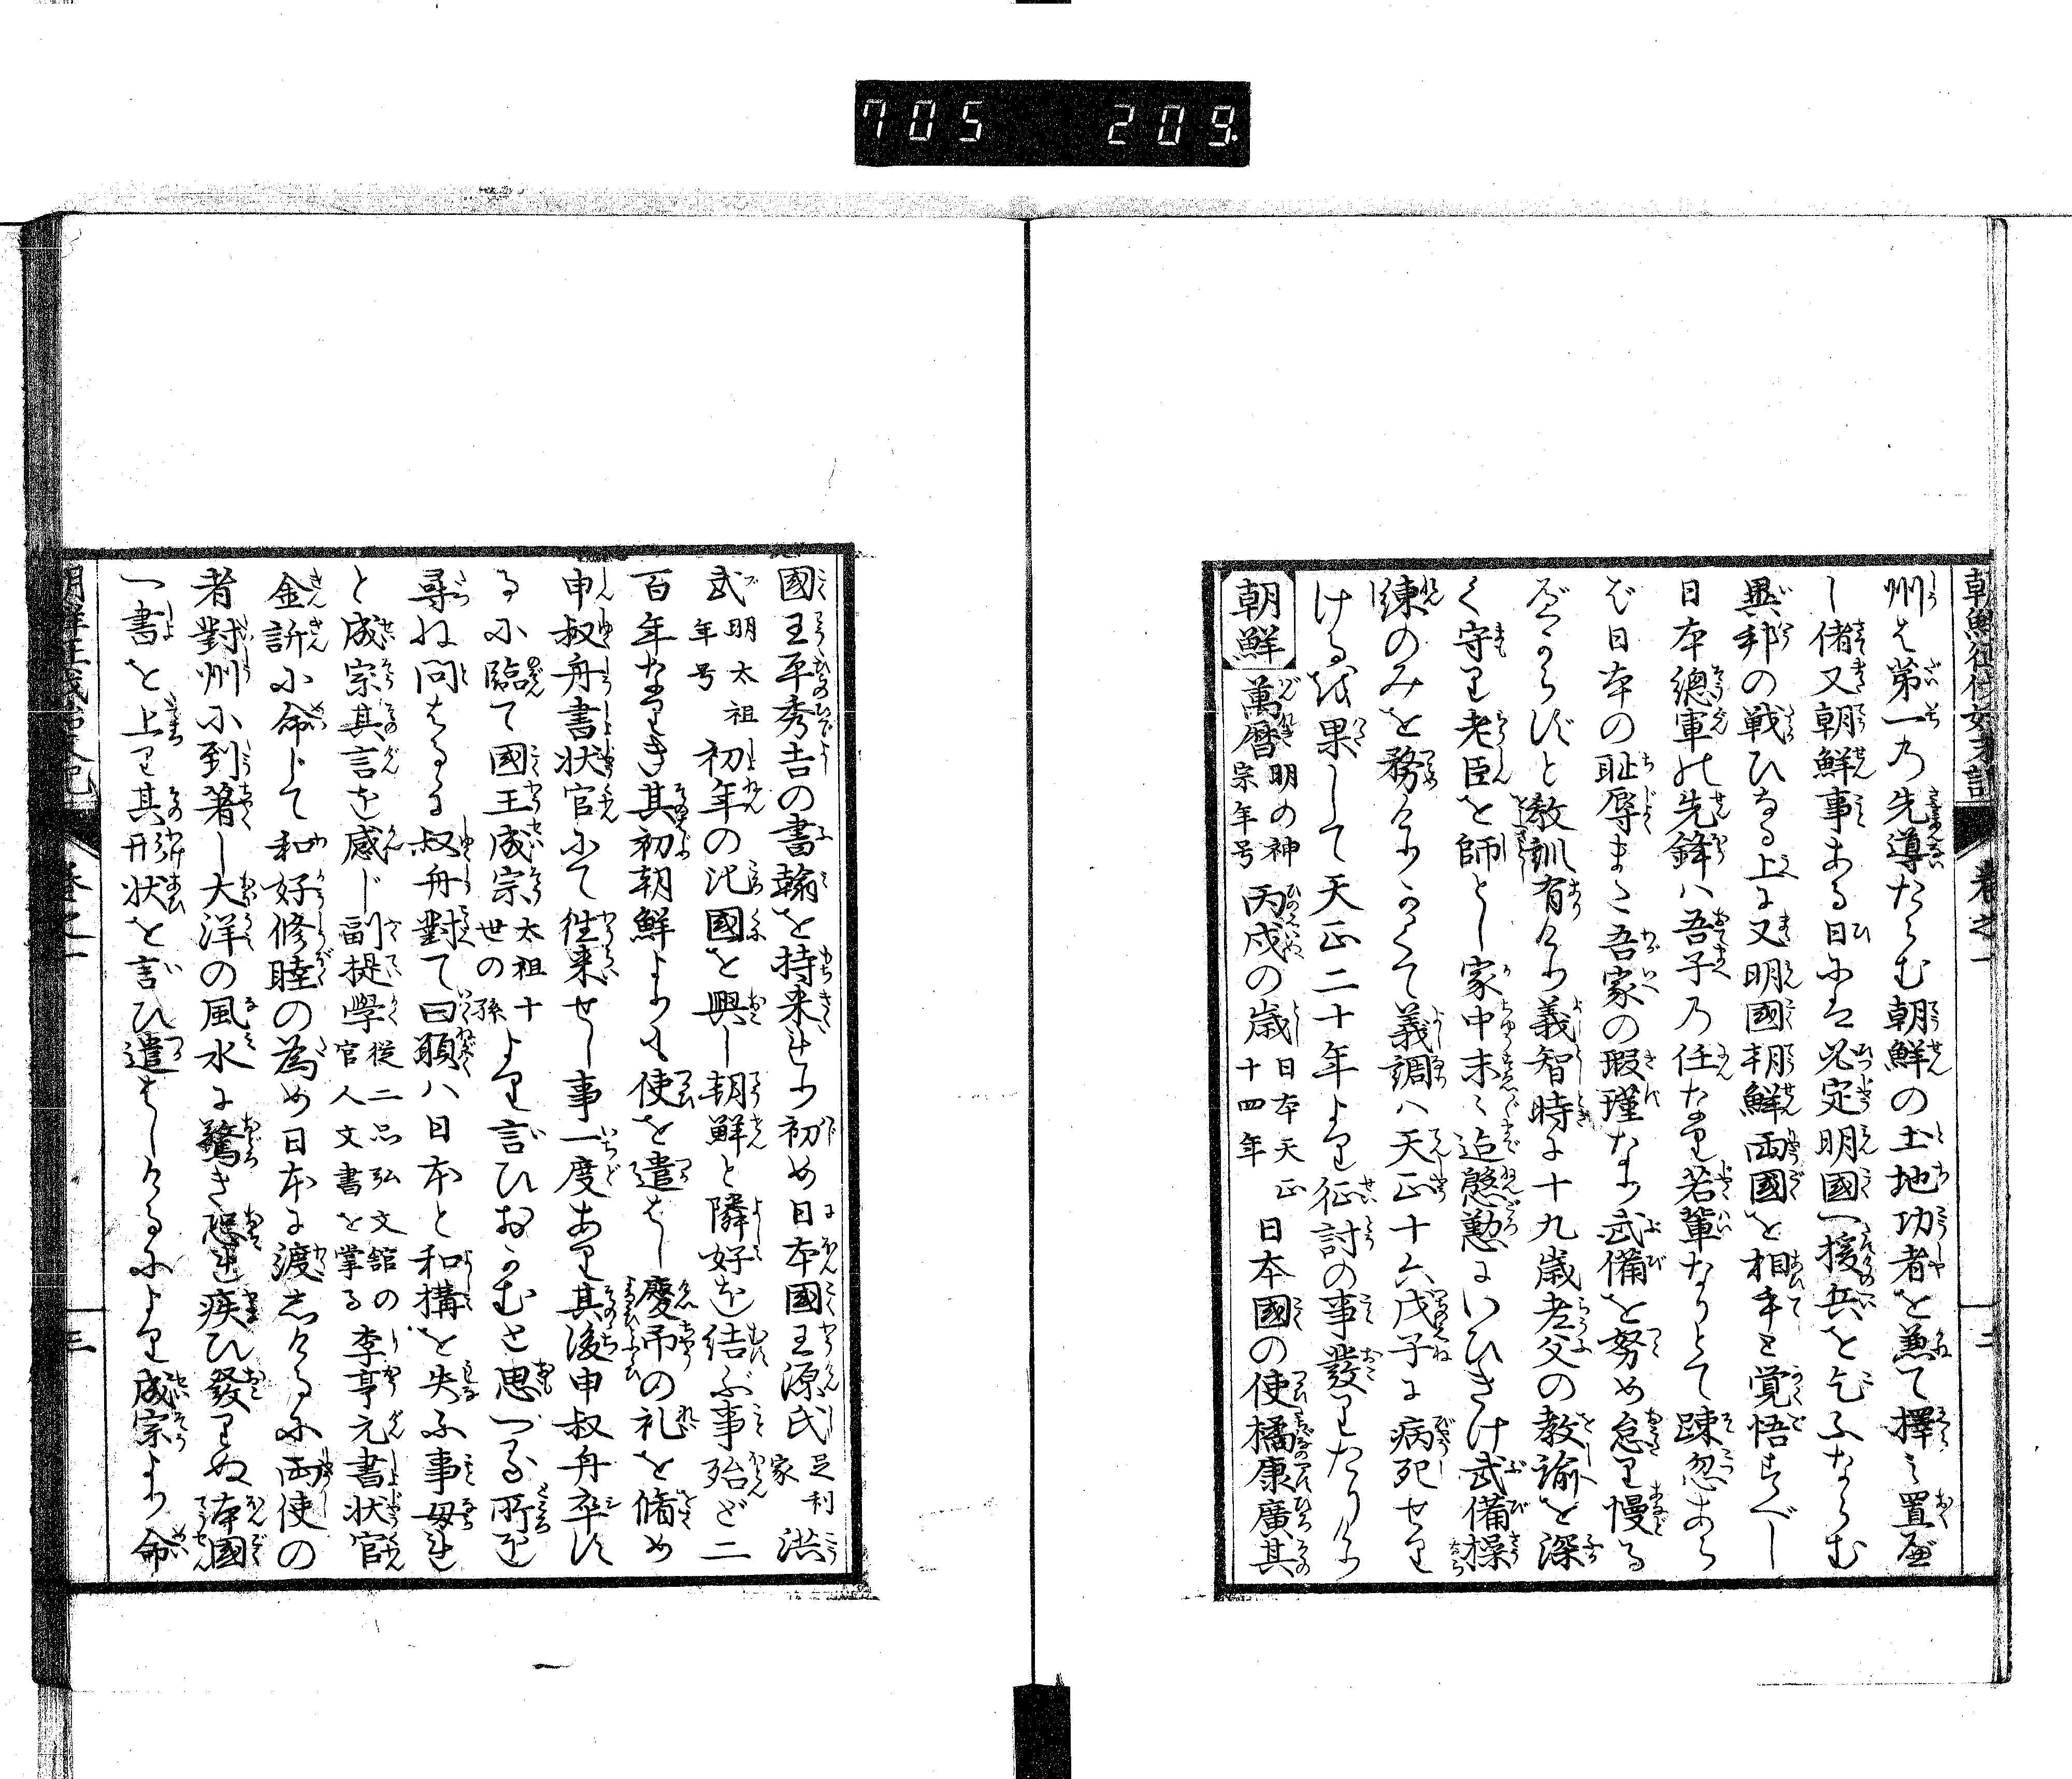 705 209.
朝鮮征伐始末記 巻之一 二
州は第一の先導たらむ朝鮮の土地功者を兼て擇み置べ
し偖又朝鮮事ある日には必定明國へ援兵を乞ふならむ
異邦の戦ひなる上に又明國朝鮮両國を相手と覚悟すべし
日本總軍の先鋒ハ吾子の任なり若輩なりとて踈忽あら
ば日本の耻辱また吾家の瑕瑾なり武備を努め怠り慢る
べからずと教訓有けり義智時に十九歳老父の教諭を深
く守り老臣を師とし家中末々迄慇懃にいひきけ武備操
練のみを務けりかくて義調ハ天正十六戊子に病死せり
ける果して天正二十年より征討の事發りたりけり
朝鮮 萬暦明の神宗年号丙戌の歳日本天正十四年日本國の使橘康廣其
國王平秀吉の書翰を持来れり初め日本國王源氏足利家洪
武明太祖年号初年の比國を興し朝鮮と隣好を結ぶ事殆ど二
百年なりき其初朝鮮よりも使を遣はし慶吊の礼を脩め
申叔舟書状官にて徃来せし事一度あり其後申叔舟卒す
るに臨て國王成宗太祖十世の孫より言ひおかむと思つる所を
尋ね問はるに叔舟對て曰願ハ日本と和構を失ふ事毋れ
と成宗其言を感じ副提學從二品弘文舘の官人文書を掌る李亨元書状官
金訢に命じて和好修睦の為め日本に渡しけるに両使の
者對州に到着し大洋の風水に驚き恐れ疾ひ發りぬ本國
へ書を上り其形状を言ひ遣はしけるにより成宗より命
朝鮮征伐始末記 巻之一 三